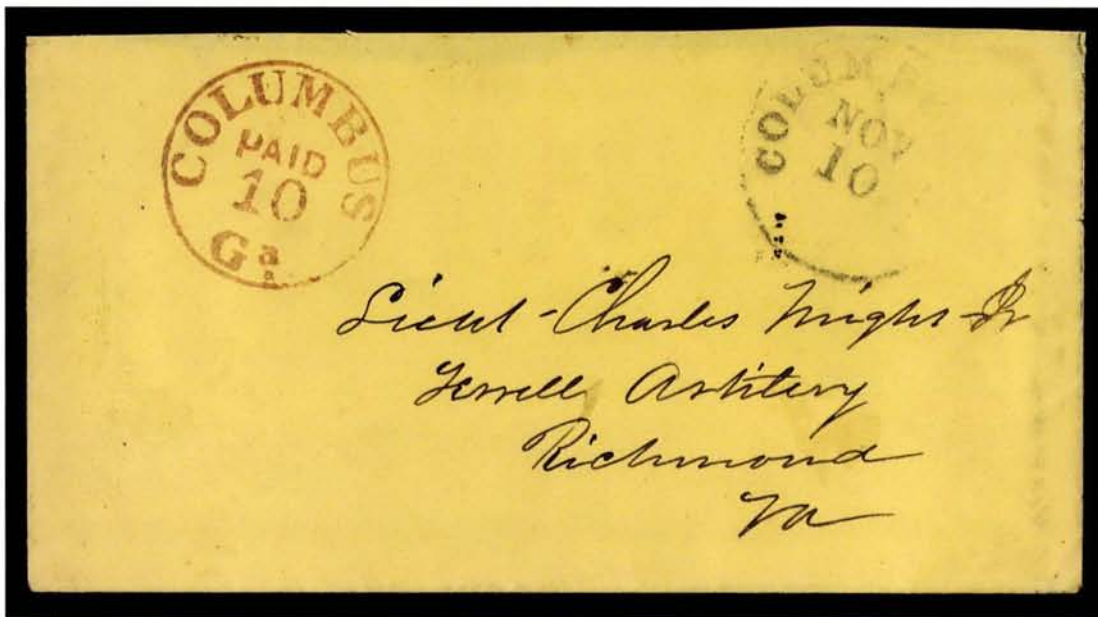 COLUMBUS
PAID
10
Ga
COLUMB
NOV
10
Lieut - Charles Jr
Terrell Artillery
Richmond
Va